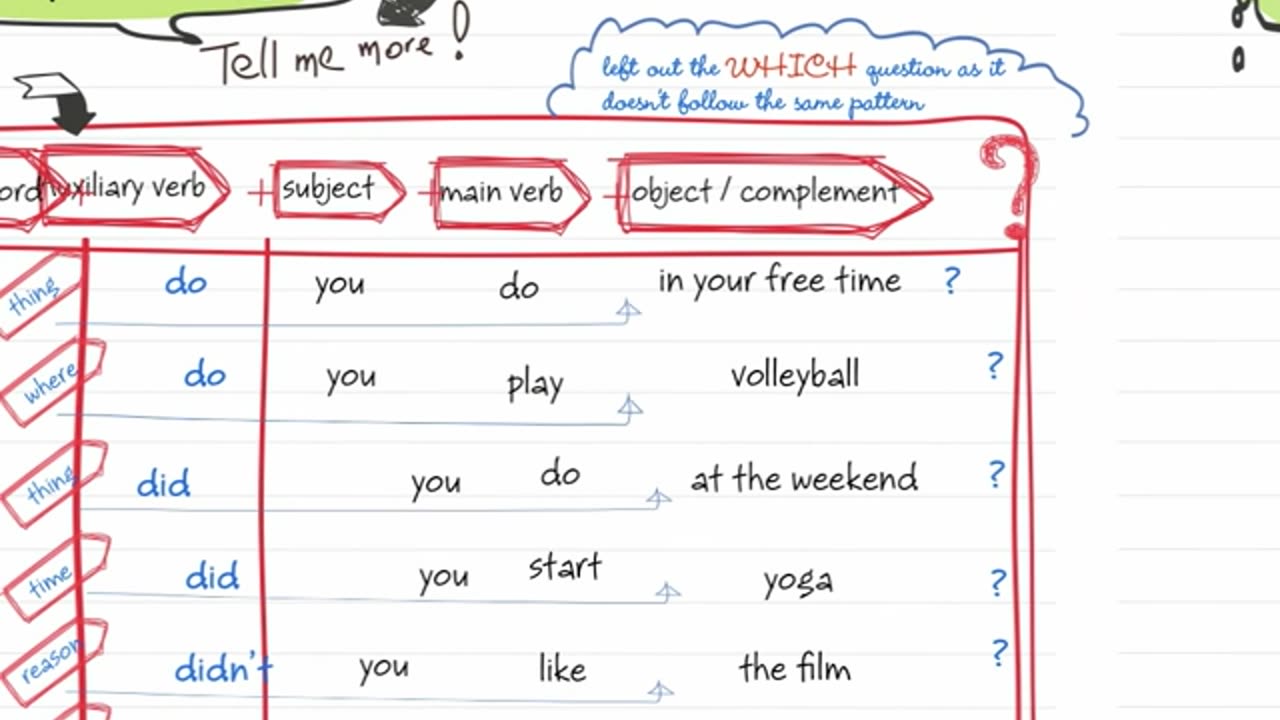 Tell me more!
left out the WHICH question as it
doesn't follow the same pattern
auxiliary verb + subject + main verb + object / complement ?
thing do you do in your free time ?
where do you play volleyball ?
thing did you do at the weekend ?
time did you start yoga ?
reason didn't you like the film ?